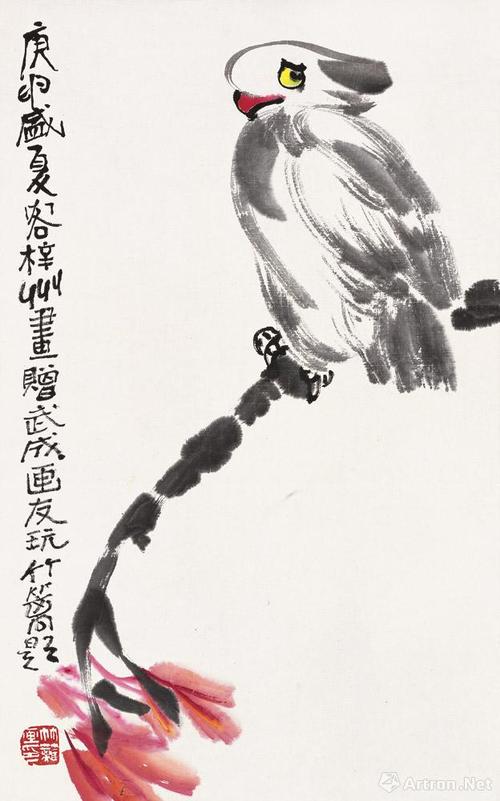 庚卯盛夏客梓州畫贈武成画友玩竹篱題
Artron.Net